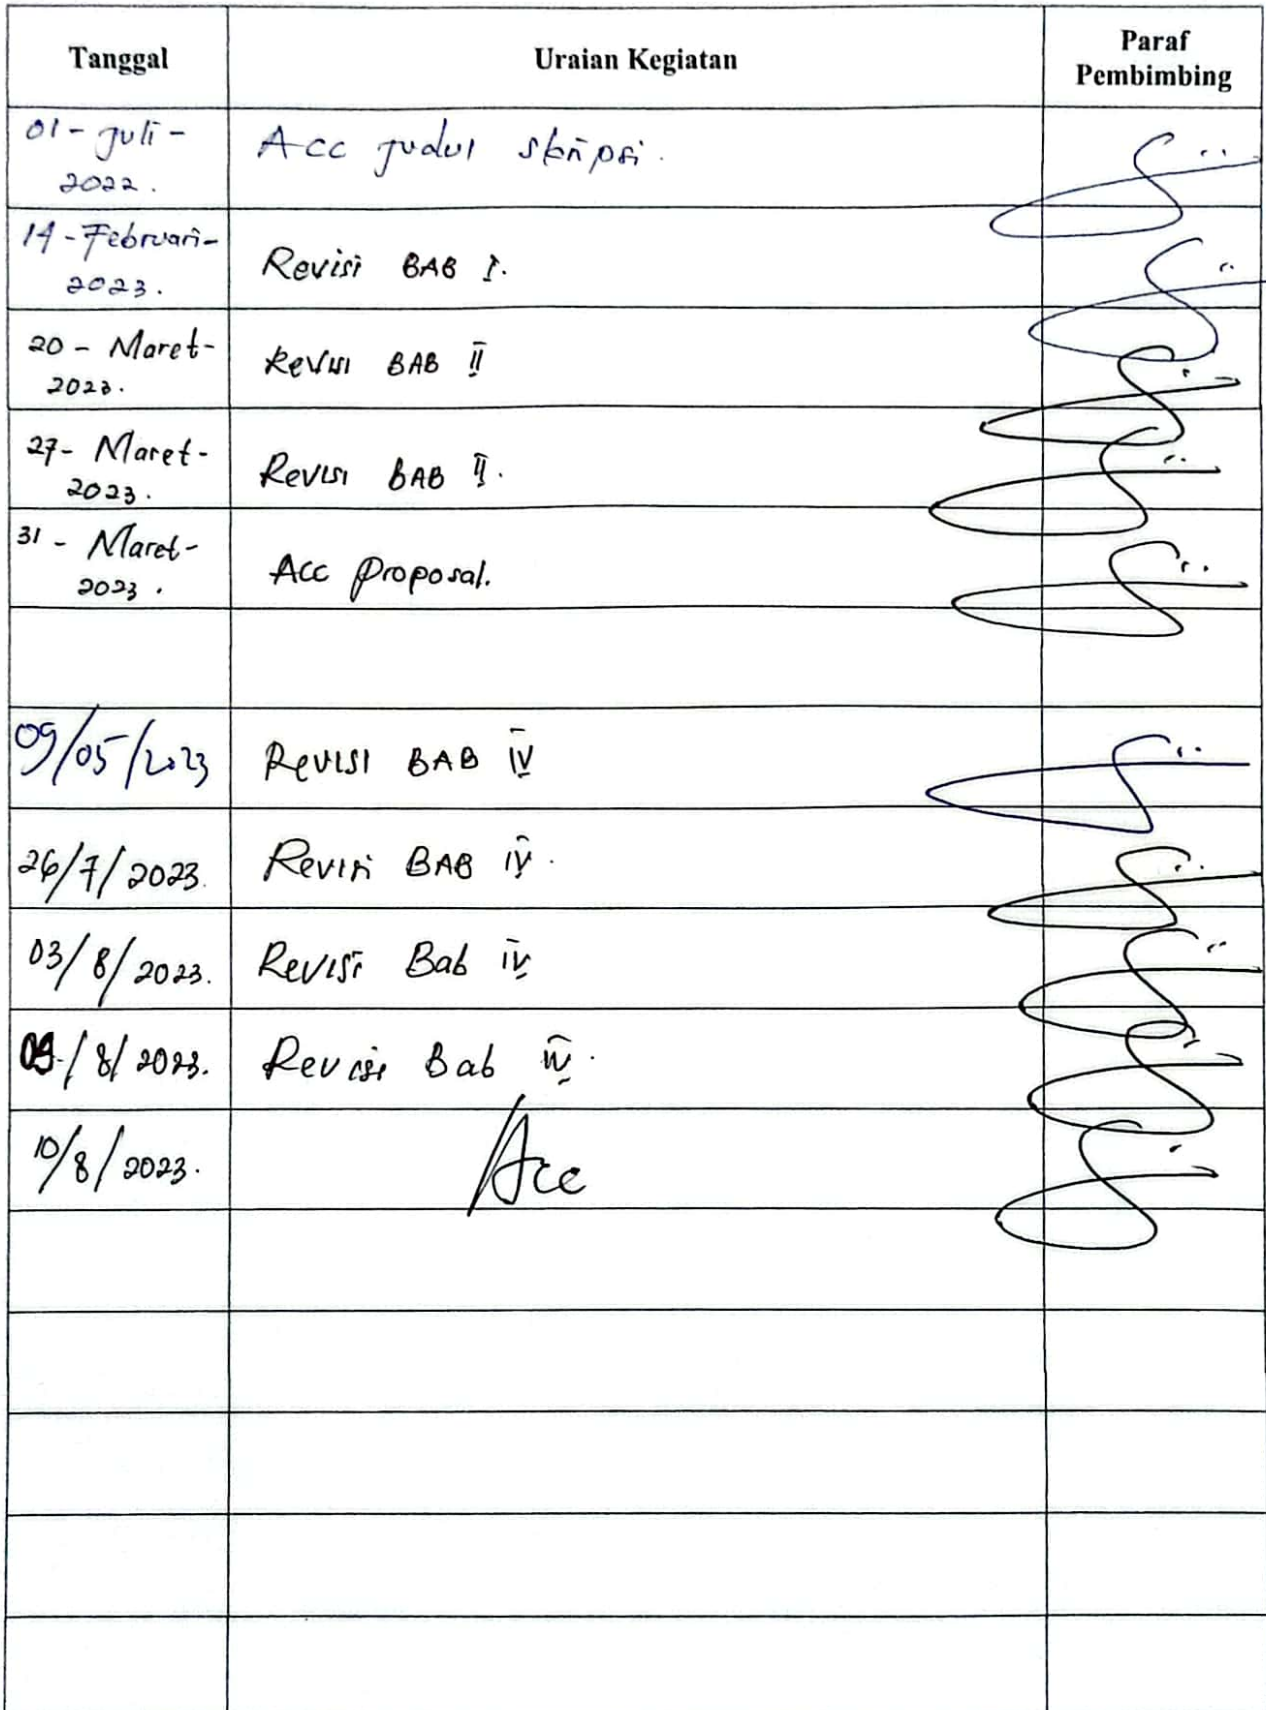 Tanggal
Uraian Kegiatan
Paraf
Pembimbing
01 - Juli -
2022.
Acc Judul skripsi.
14 - Februari -
2023.
Revisi BAB I.
20 - Maret -
2023.
Revisi BAB II
27 - Maret -
2023.
Revisi BAB II.
31 - Maret -
2023.
Acc proposal.
09/05/2023
Revisi BAB IV
26/7/2023.
Revisi BAB IV.
03/8/2023.
Revisi Bab IV
/8/2023.
Revisi Bab IV.
10/8/2023.
Acc